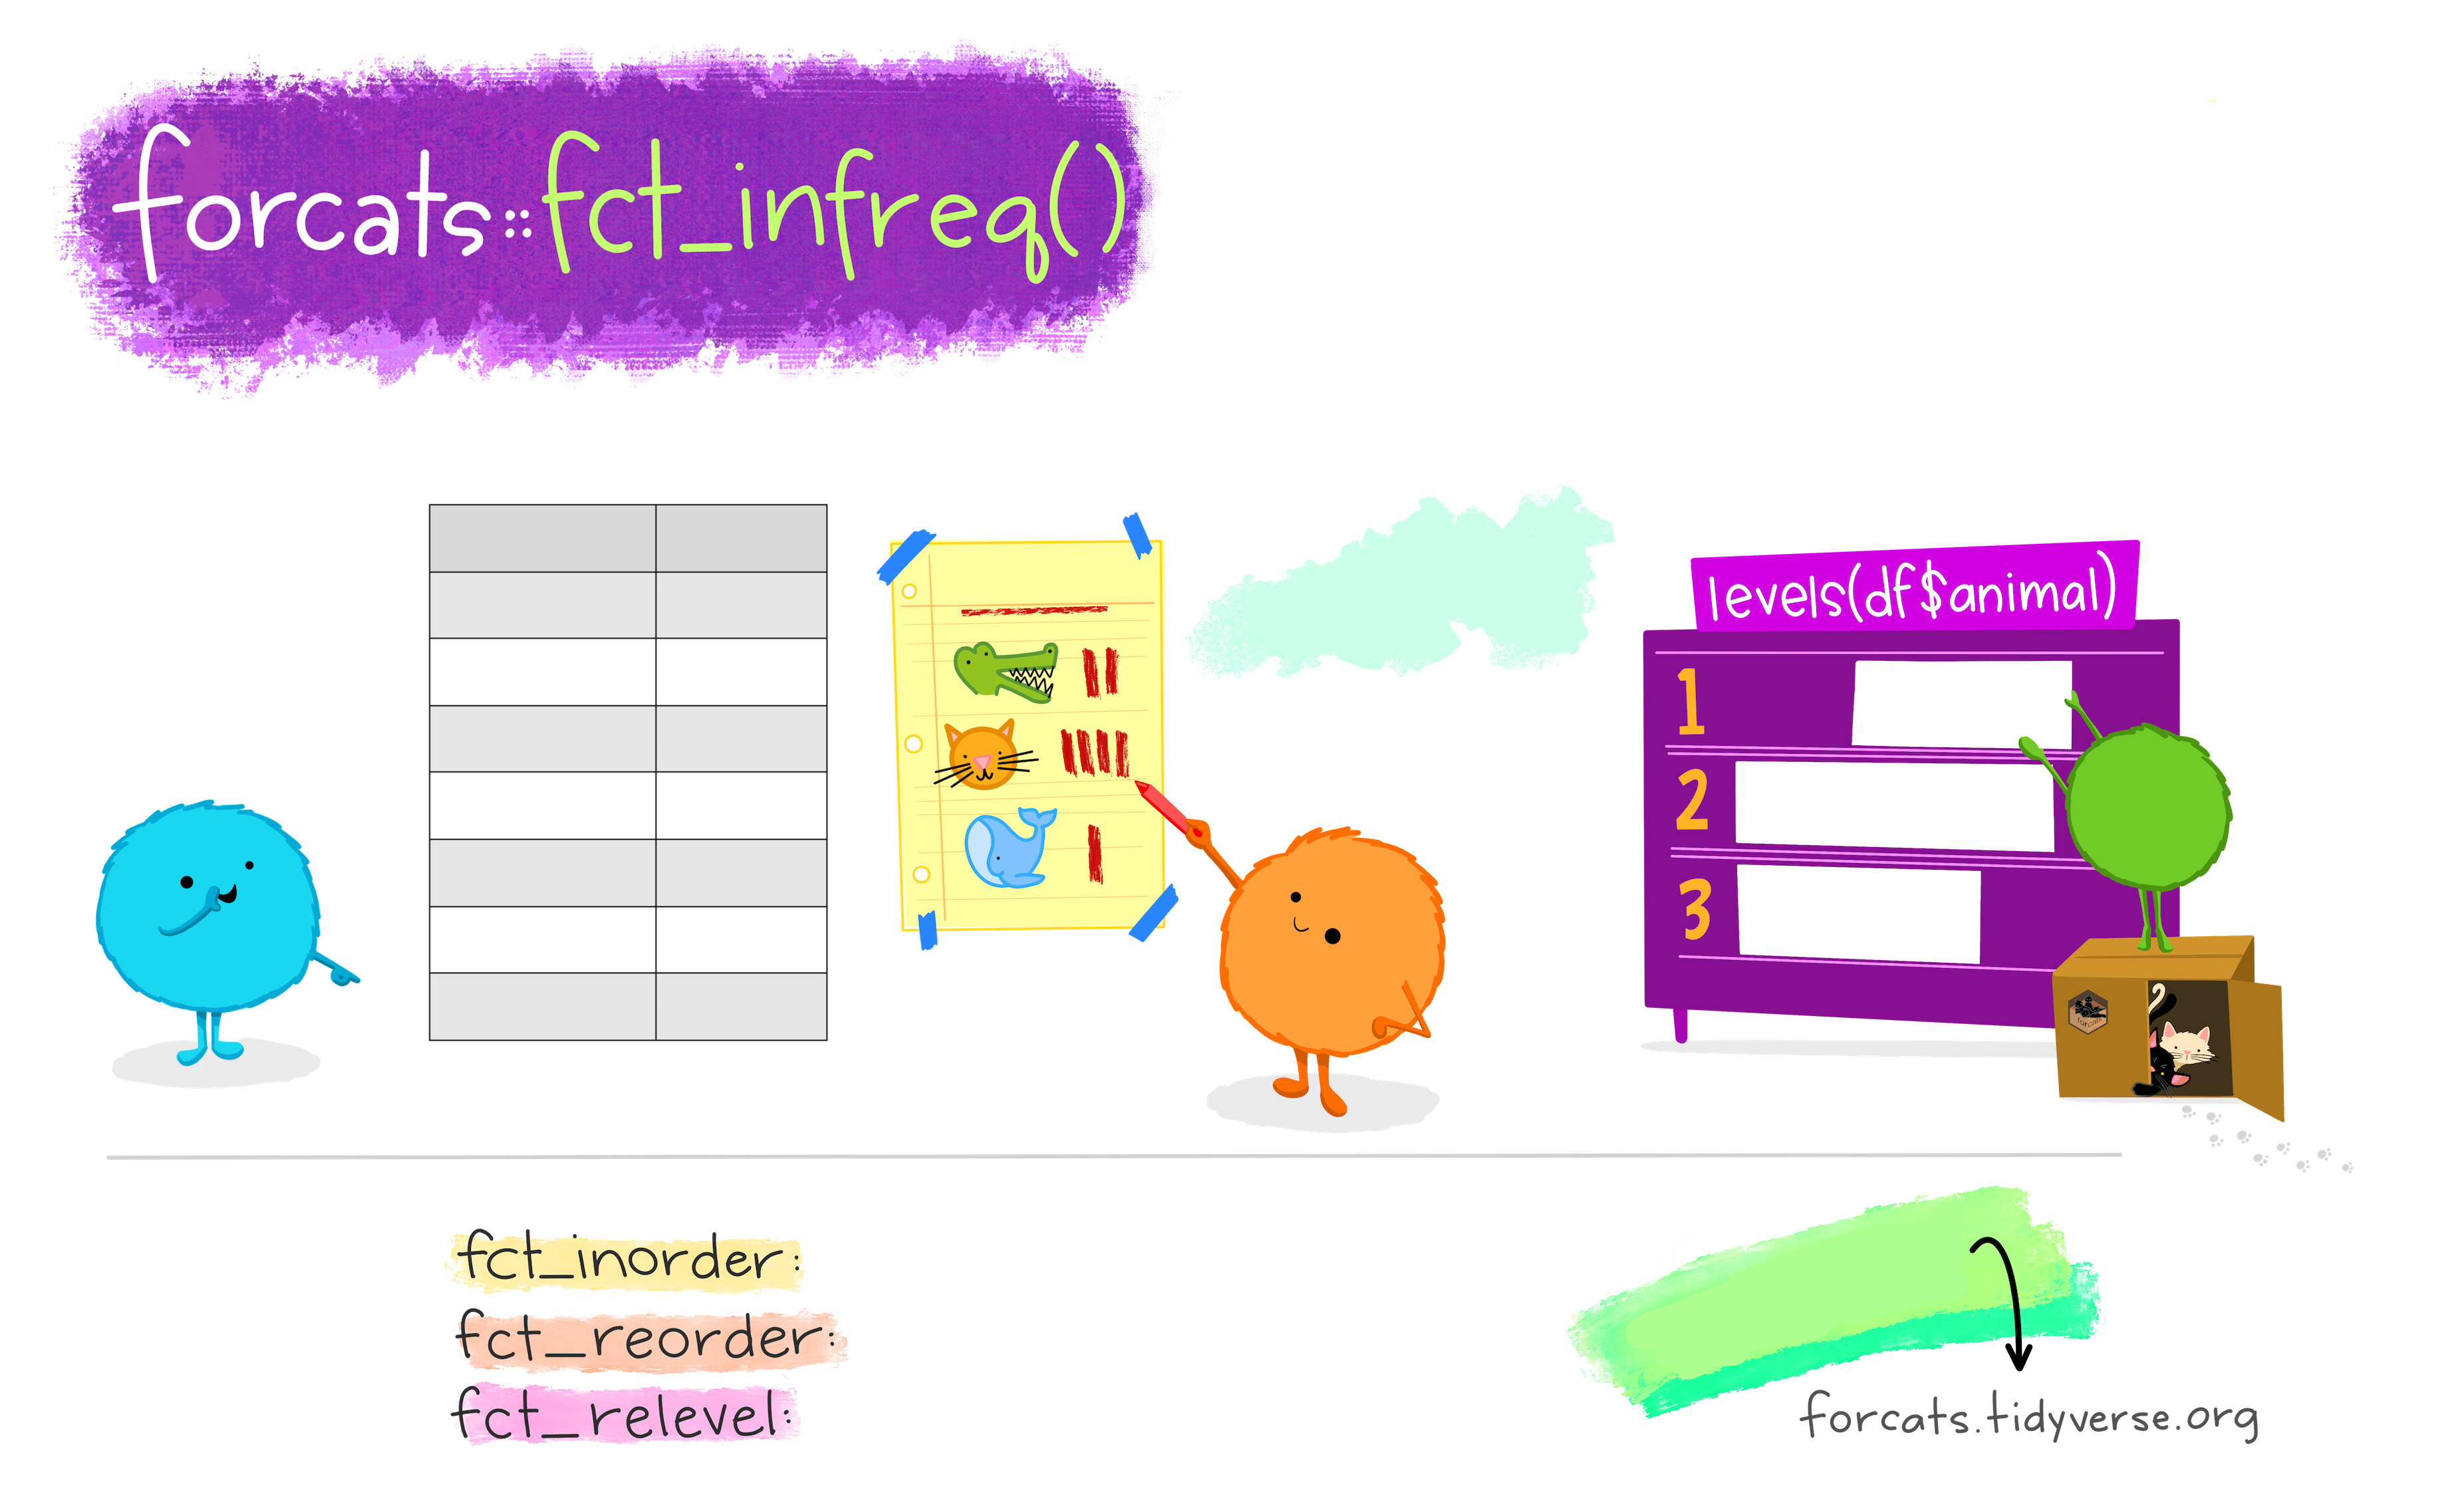 forcats::fct_infreq()
levels(df$animal)
1
2
3
forcats
fct_inorder:
fct_reorder:
fct_relevel:
forcats.tidyverse.org